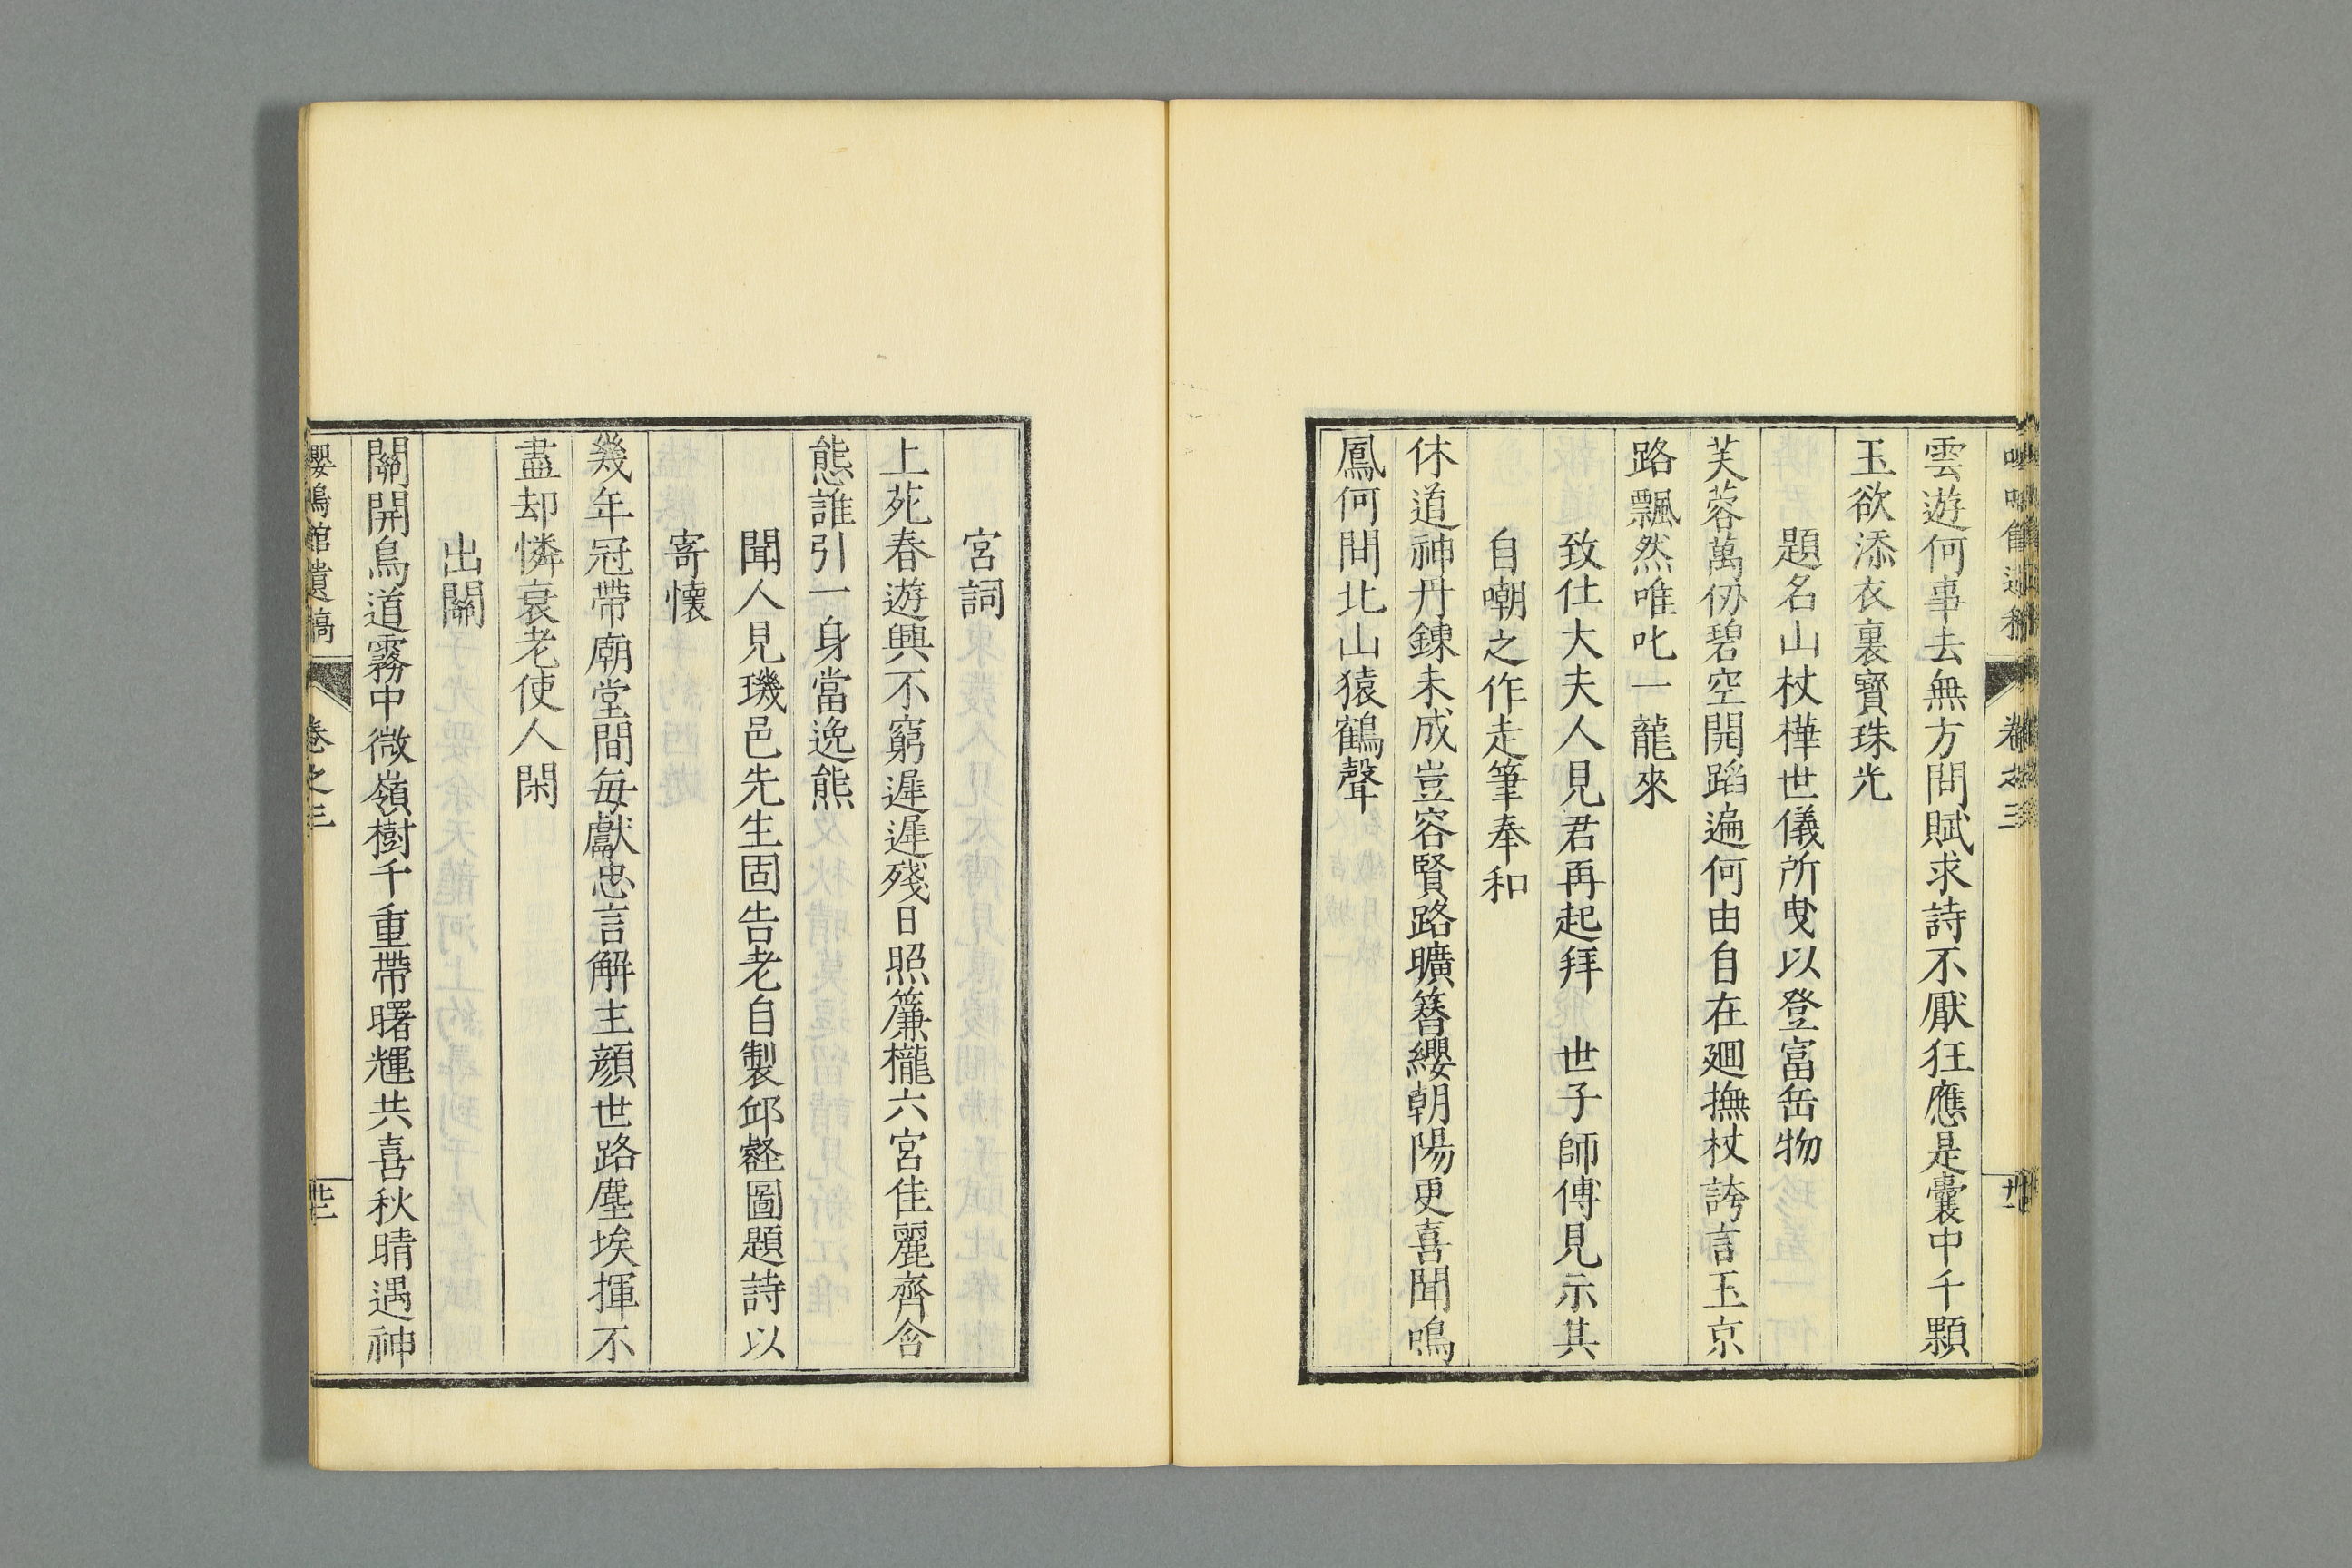 雲遊何事去無方問賦求詩不厭狂應是囊中千顆
玉欲添衣裏寶珠光
題名山杖樺世儀所曳以登富岳物
芙蓉萬仞碧空開蹈遍何由自在廻撫杖誇言玉京
路飄然唯叱一龍來
致仕大夫人見君再起拜 世子師傅見示其
自嘲之作走筆奉和
休道神丹錬未成豈容賢路曠簪纓朝陽更喜聞鳴
鳳何問北山猿鶴聲
宮詞
上苑春遊興不窮遲遲殘日照簾櫳六宮佳麗齊含
態誰引一身當逸熊
聞人見璣邑先生固告老自製邱壑圖題詩以
寄懷
幾年冠帶廟堂間毎獻忠言解主顔世路塵埃揮不
盡却憐衰老使人閑
出關
關開鳥道霧中微嶺樹千重帶曙輝共喜秋晴遇神
嚶鳴館遺稿 卷之三 廿二